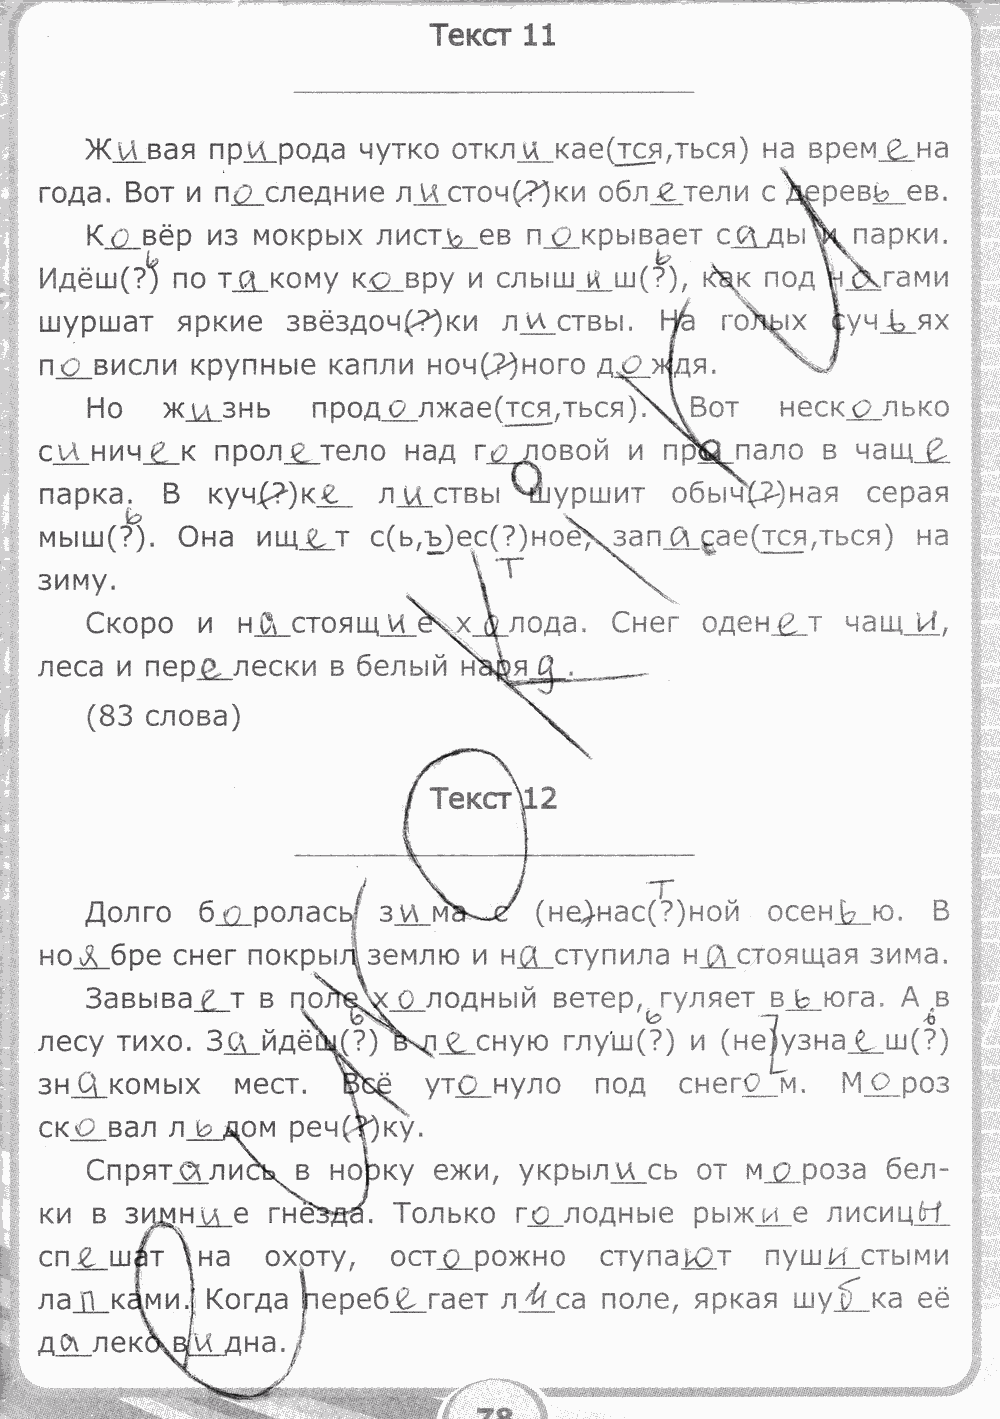 Текст 11
Живая природа чутко откликае(тся,ться) на времена
года. Вот и последние листоч(?)ки облетели с деревьев.
Ковёр из мокрых листьев покрывает сады и парки.
Идёш(?)ь по такому ковру и слышиш(?)ь, как под ногами
шуршат яркие звёздоч(?)ки листвы. На голых сучьях
повисли крупные капли ноч(?)ного дождя.
Но жизнь продолжае(тся,ться). Вот несколько
синичек пролетело над головой и пропало в чаще
парка. В куч(?)ке листвы шуршит обыч(?)ная серая
мыш(?)ь. Она ищет с(ь,ъ)ес(?)тное, запасае(тся,ться) на
зиму.
Скоро и настоящие холода. Снег оденет чащи,
леса и перелески в белый наряд.
(83 слова)
Текст 12
Долго боролась зима с (не)нас(?)тной осенью. В
ноябре снег покрыл землю и наступила настоящая зима.
Завывает в поле холодный ветер, гуляет вьюга. А в
лесу тихо. Зайдёш(?)ь в лесную глуш(?)ь и (не)узнаеш(?)ь
знакомых мест. Всё утонуло под снегом. Мороз
сковал льдом реч(?)ку.
Спрятались в норку ежи, укрылись от мороза бел-
ки в зимние гнёзда. Только голодные рыжие лисицы
спешат на охоту, осторожно ступают пушистыми
лапками. Когда перебегает лиса поле, яркая шубка её
далеко видна.
78